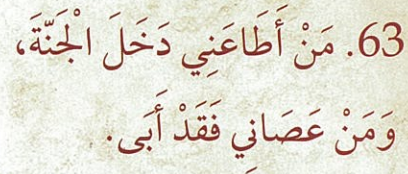 63. مَنْ أَطَاعَنِي دَخَلَ الْجَنَّةَ،
وَمَنْ عَصَانِي فَقَدْ أَبَى.